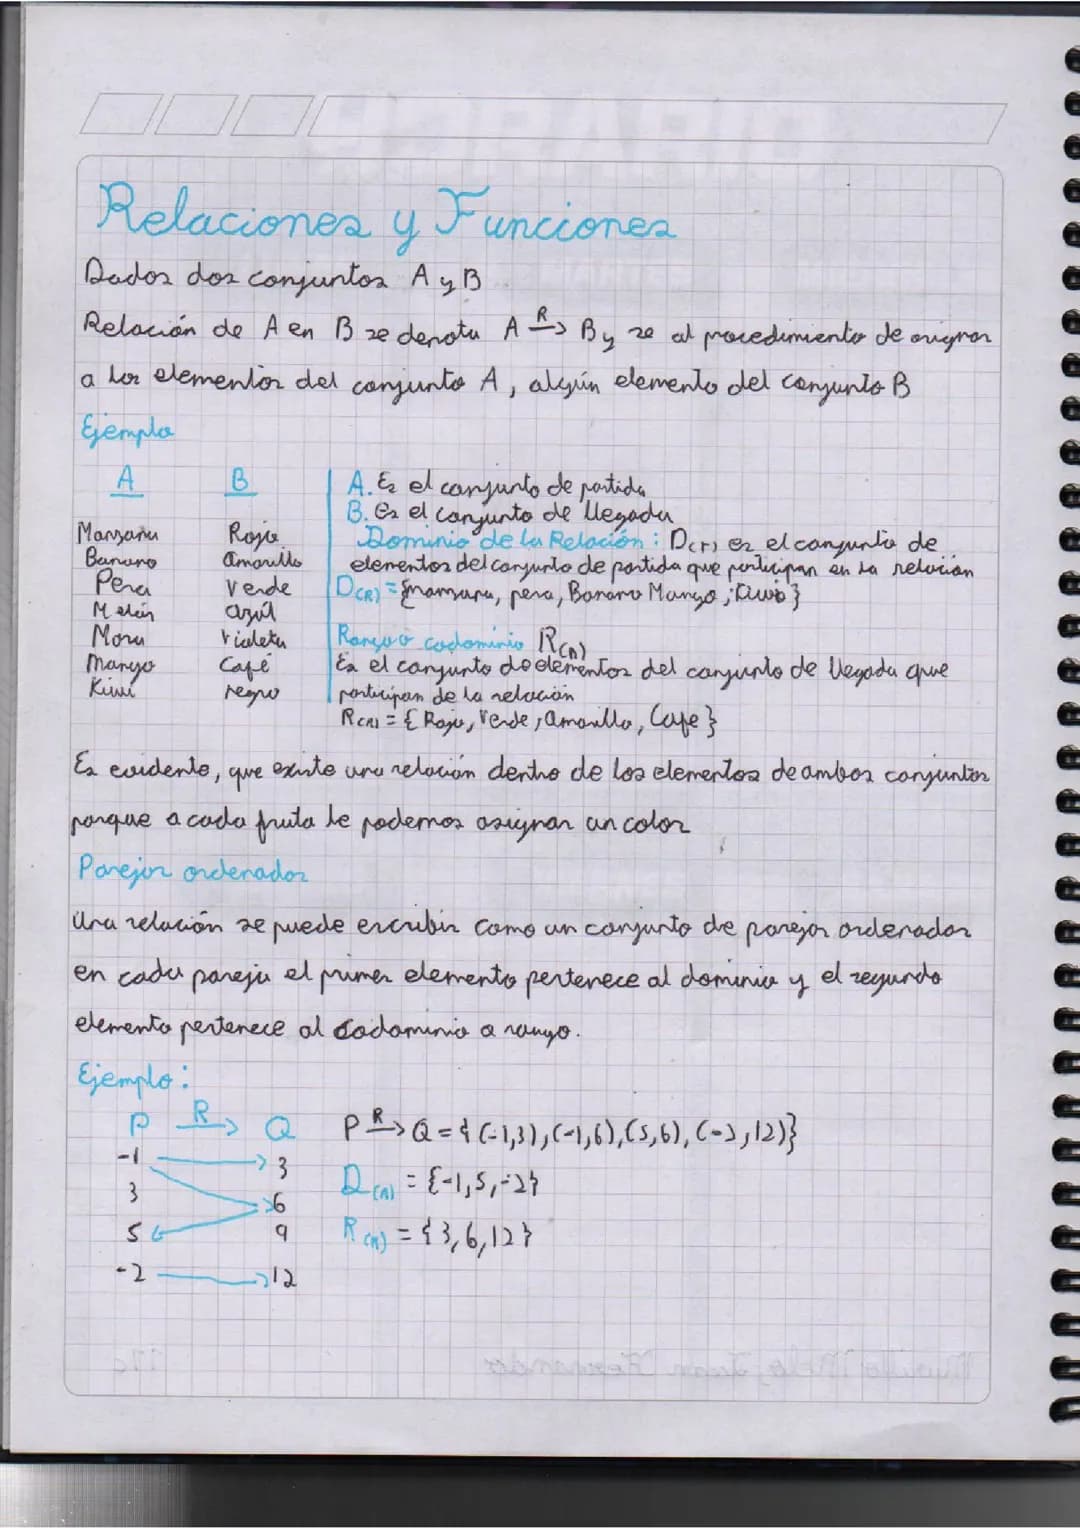 Relaciones y Funciones
Dados dos conjuntos A y B
Relación de A en B se denota A R→ B y se al procedimiento de asignar
a los elementos del conjunto A, algún elemento del conjunto B
Ejemplo
A B
Manzana Rojo
Banano amarillo
Pera Verde
Melón azúl
Mora violeta
Mango Café
Kiwi negro
A. Es el conjunto de partida
B. Es el conjunto de llegada
Dominio de la Relación: D(r) es el conjunto de
elementos del conjunto de partida que participan en la relación
D(R) = {manzana, pera, Banano Mango, Kiwi}
Rango o codominio R(R)
Es el conjunto de elementos del conjunto de llegada que
participan de la relación
R(R) = {Rojo, Verde, amarillo, Cafe}
Es evidente, que existe una relación dentro de los elementos de ambos conjuntos
porque a cada fruta le podemos asignar un color
Parejas ordenadas
Una relación se puede escribir como un conjunto de parejas ordenadas
en cada pareja el primer elemento pertenece al dominio y el segundo
elemento pertenece al codominio o rango.
Ejemplo:
P R→ Q
-1 3
3 6
5 9
-2 12
P R→ Q = {(-1,3),(-1,6),(5,6),(-2,12)}
D(R) = {-1,5,-2}
R(R) = {3,6,12}